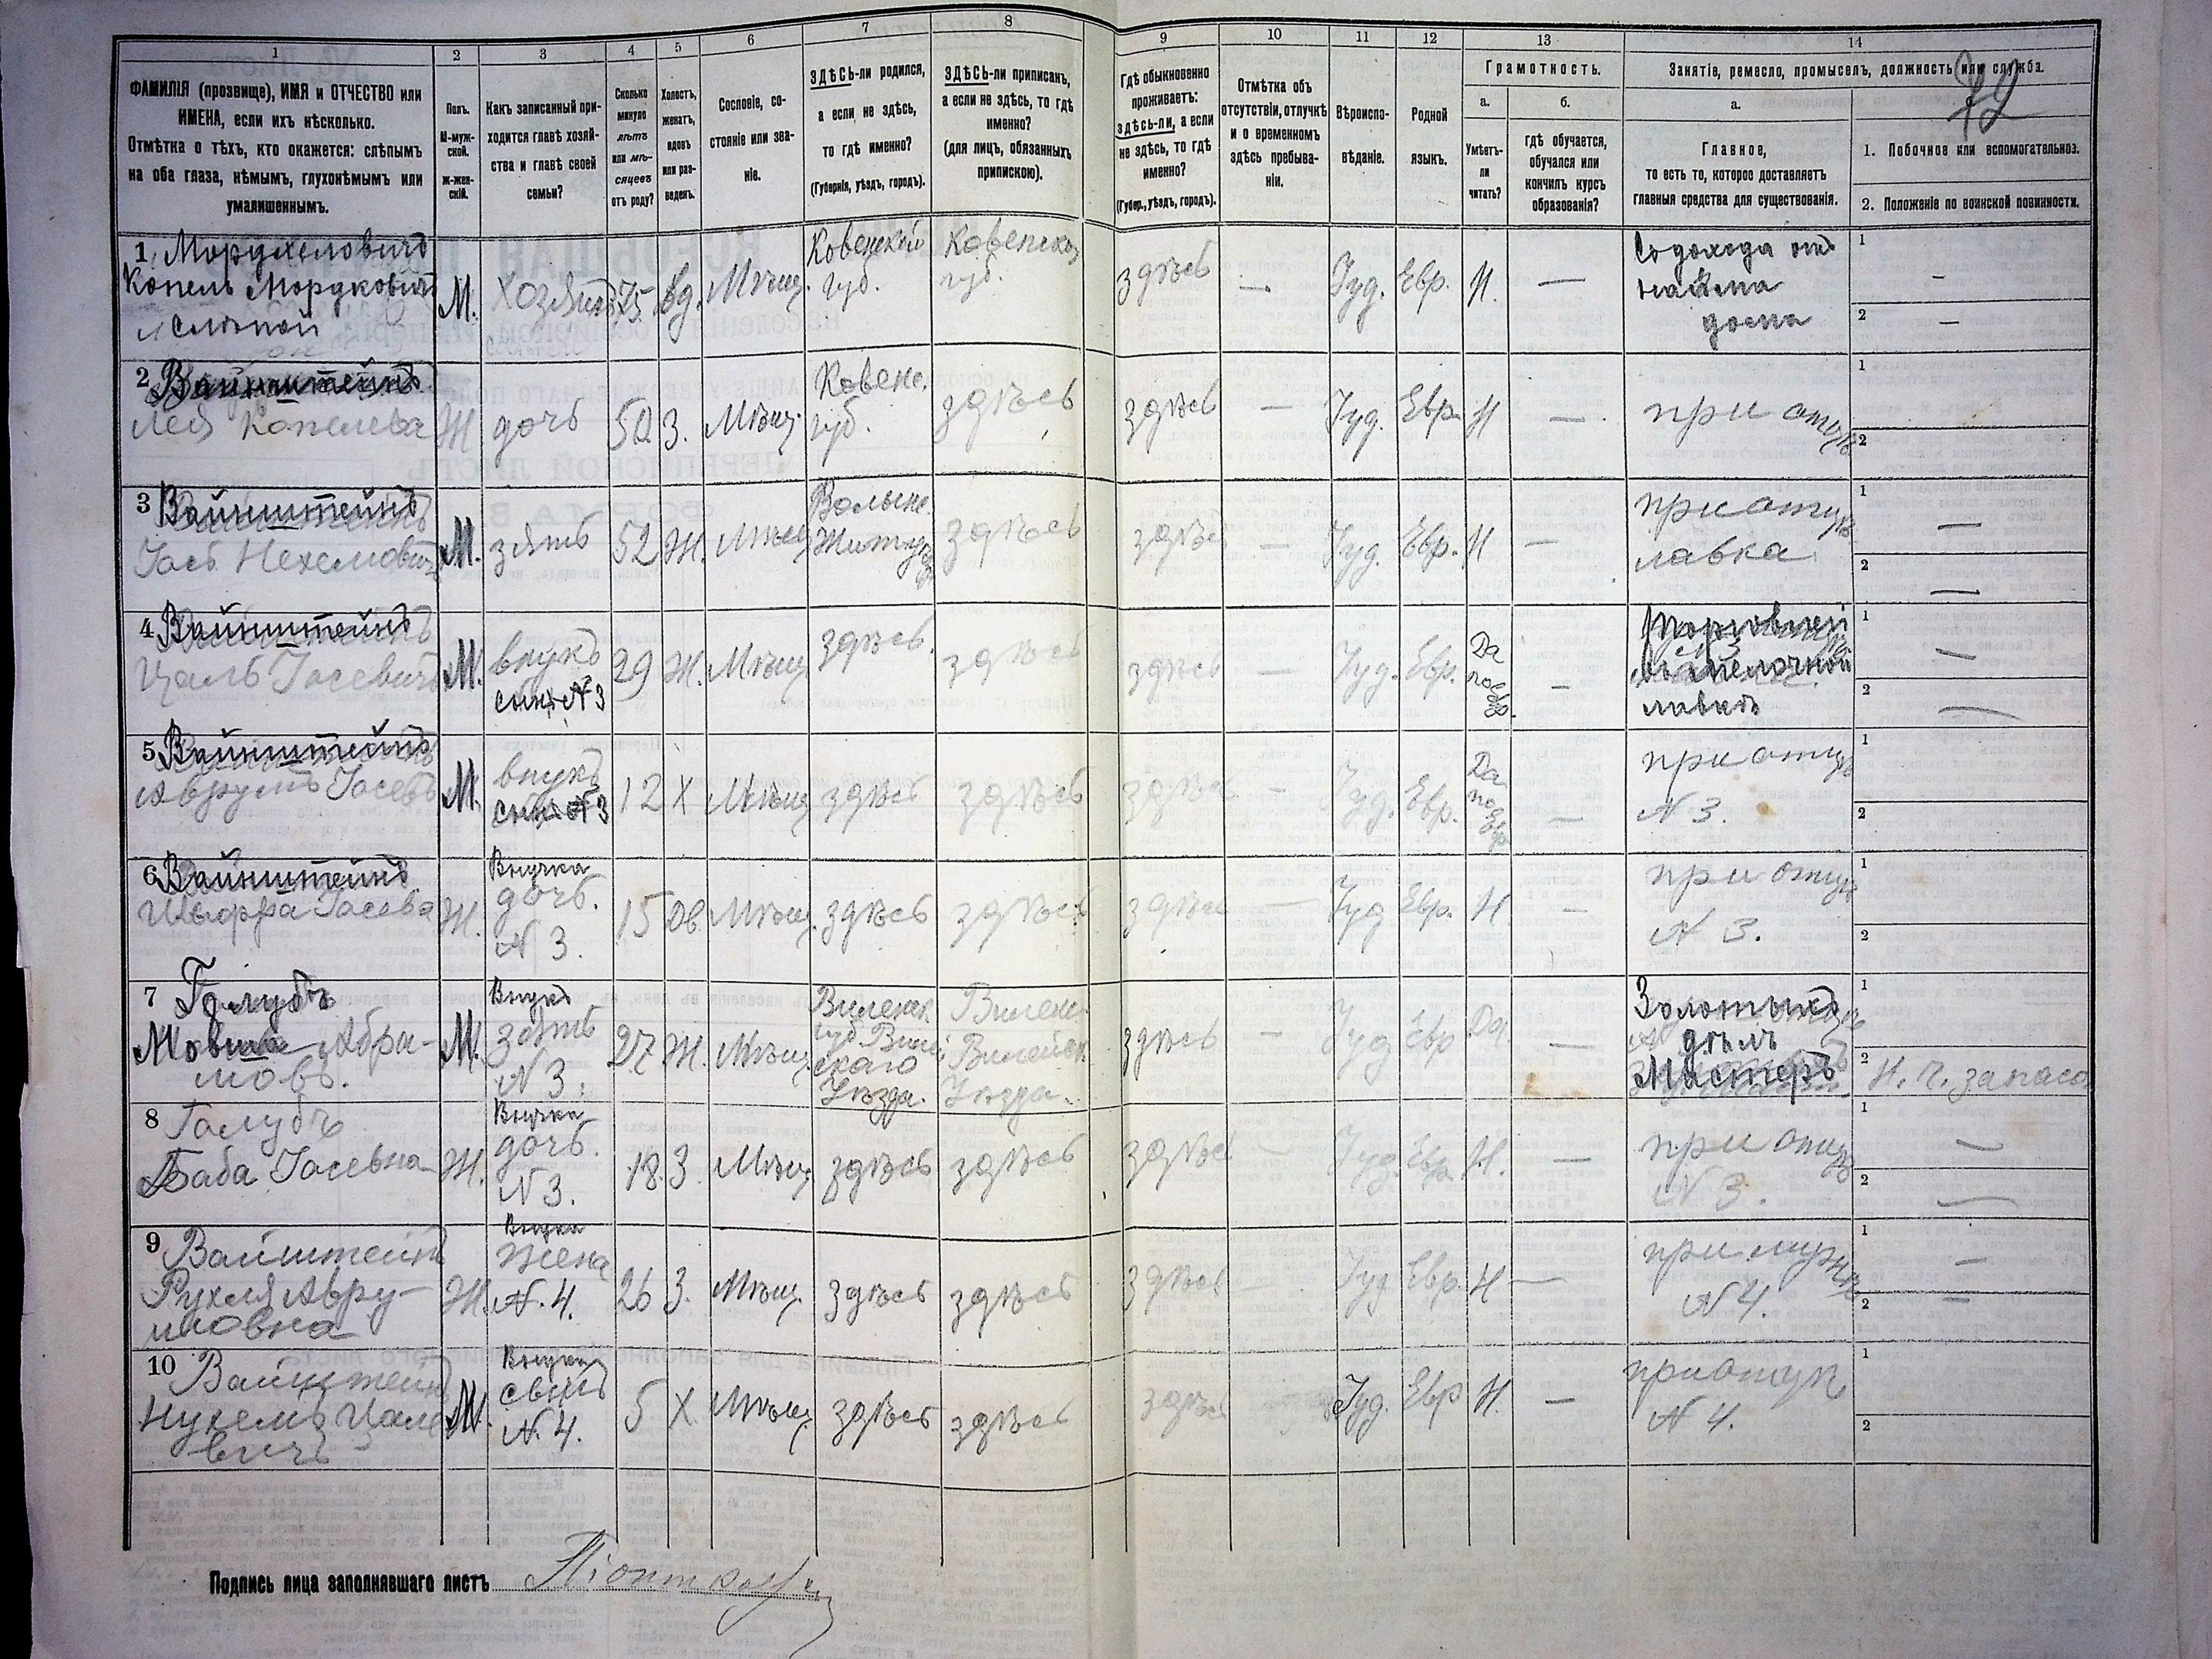 1 2 3 4 5 6 7 8 9 10 11 12 13 14
ФАМИЛІЯ (прозвище), ИМЯ и ОТЧЕСТВО или
ИМЕНА, если ихъ нѣсколько.
Отмѣтка о тѣхъ, кто окажется: слѣпымъ
на оба глаза, нѣмымъ, глухонѣмымъ или
умалишеннымъ.
Полъ.
М-муж-
ской.
Ж-жен-
скій.
Какъ записанный при-
ходится главѣ хозяй-
ства и главѣ своей
семьи?
Сколько
минуло
лѣтъ
или мѣ-
сяцевъ
отъ роду?
Холостъ,
женатъ,
вдовъ
или раз-
веденъ.
Сословіе, со-
стояніе или зва-
ніе.
ЗДѢСЬ-ли родился,
а если не здѣсь,
то гдѣ именно?
(Губернія, уѣздъ, городъ).
ЗДѢСЬ-ли приписанъ,
а если не здѣсь, то гдѣ
именно?
(для лицъ, обязанныхъ
припискою).
Гдѣ обыкновенно
проживаетъ:
здѣсь-ли, а если
не здѣсь, то гдѣ
именно?
(Губер., уѣздъ, городъ).
Отмѣтка объ
отсутствіи, отлучкѣ
и о временномъ
здѣсь пребыва-
ніи.
Вѣроиспо-
вѣданіе.
Родной
языкъ.
Грамотность.
а.
Умѣетъ-
ли
читать?
б.
гдѣ обучается,
обучался или
кончилъ курсъ
образованія?
Занятіе, ремесло, промыселъ, должность или служба.
72
а.
Главное,
то есть то, которое доставляетъ
главныя средства для существованія.
1. Побочное или вспомогательное.
2. Положеніе по воинской повинности.
1 Мордхеловичъ
Копель Мордковичъ
слѣпой
М. Хозяинъ 75 Вд. Мѣщ.
Ковенской
губ.
Ковенской
губ.
здѣсь — Іуд. Евр. Н. —
Съ дохода отъ
найма
дома
1 —
2 —
2 Вайнштейнъ
Лея Копелева
Ж дочь 50 З. Мѣщ.
Ковенс.
губ.
здѣсь здѣсь — Іуд. Евр. Н — при отцѣ
1
2
3 Вайнштейнъ
Іось Нехемовичъ
М. зять 52 Ж. Мѣщ
Волынс.
здѣсь здѣсь — Іуд. Евр. Н —
при отцѣ
лавка
1 —
2 —
4 Вайнштейнъ
Цаль Іосевичъ
М.
внукъ
сынъ N 3
29 Ж. Мѣщ здѣсь здѣсь здѣсь — Іуд. Евр.
Да
—
въ мелочной
лавкѣ
1 —
2 —
5 Вайнштейнъ
Аврумъ Іосевъ
М.
внукъ
сынъ N 3
12 Х Мѣщ здѣсь здѣсь здѣсь — Іуд. Евр.
Да
—
при отцѣ
N 3.
1
2
6 Вайнштейнъ
Іосева
Ж.
Внучка
дочь.
N 3.
15 Дв. Мѣщ. здѣсь здѣсь здѣсь — Іуд Евр. Н. —
при отцѣ
N 3.
1
2
7 Голубъ
Мовша Абра-
мовъ.
М.
Внукъ
зять
N 3.
27 Ж. Мѣщ.
Виленск
губ. Вилей
скаго
Уѣзда.
Виленс.
Вилейск.
Уѣзда.
здѣсь — Іуд Евр Да. —
Золотыхъ
дѣлъ
Мастеръ
1
2 Н. ч. запаса
8 Голубъ
Баба Іосевна
Ж.
Внучка
дочь.
N 3.
18. З Мѣщ здѣсь здѣсь здѣсь — Іуд. Евр. Н. —
при отцѣ
N 3.
1 —
2 —
9 Вайштейнъ
Рухля Авру-
мовна
Ж.
Жена
N. 4.
26 З. Мѣщ. здѣсь здѣсь здѣсь — Іуд Евр. Н —
при мужѣ
N 4.
1 —
2 —
10 Вайштейнъ
Нухемъ Цале
вичъ
М.
сынъ
N. 4.
5 Х Мѣщ. здѣсь здѣсь здѣсь Іуд. Евр Н. —
при отцѣ
N 4.
1
2
Подпись лица заполнявшаго листъ